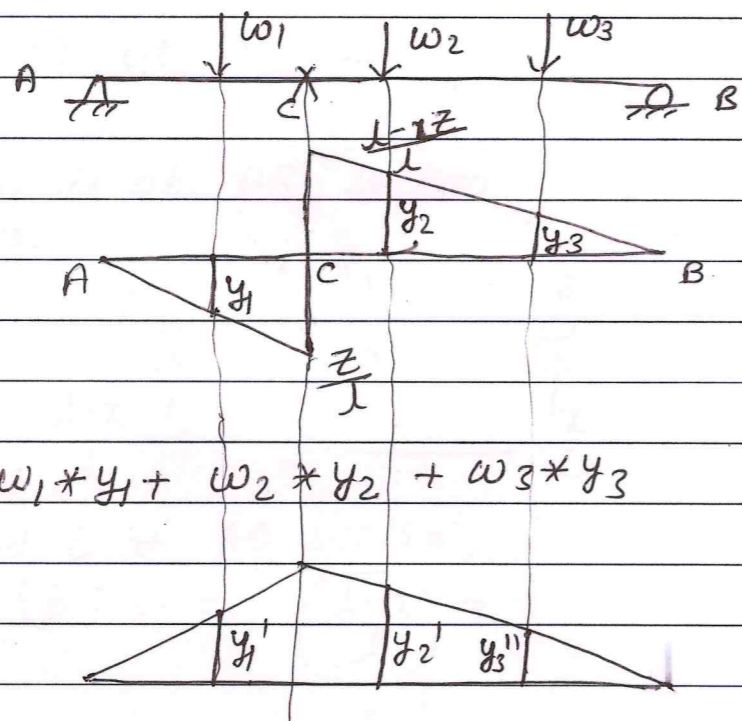 w1 w2 w3
A C B
l-z/l
y2 y3
A y1 C B
z/l
w1*y1 + w2*y2 + w3*y3
y1' y2' y3''